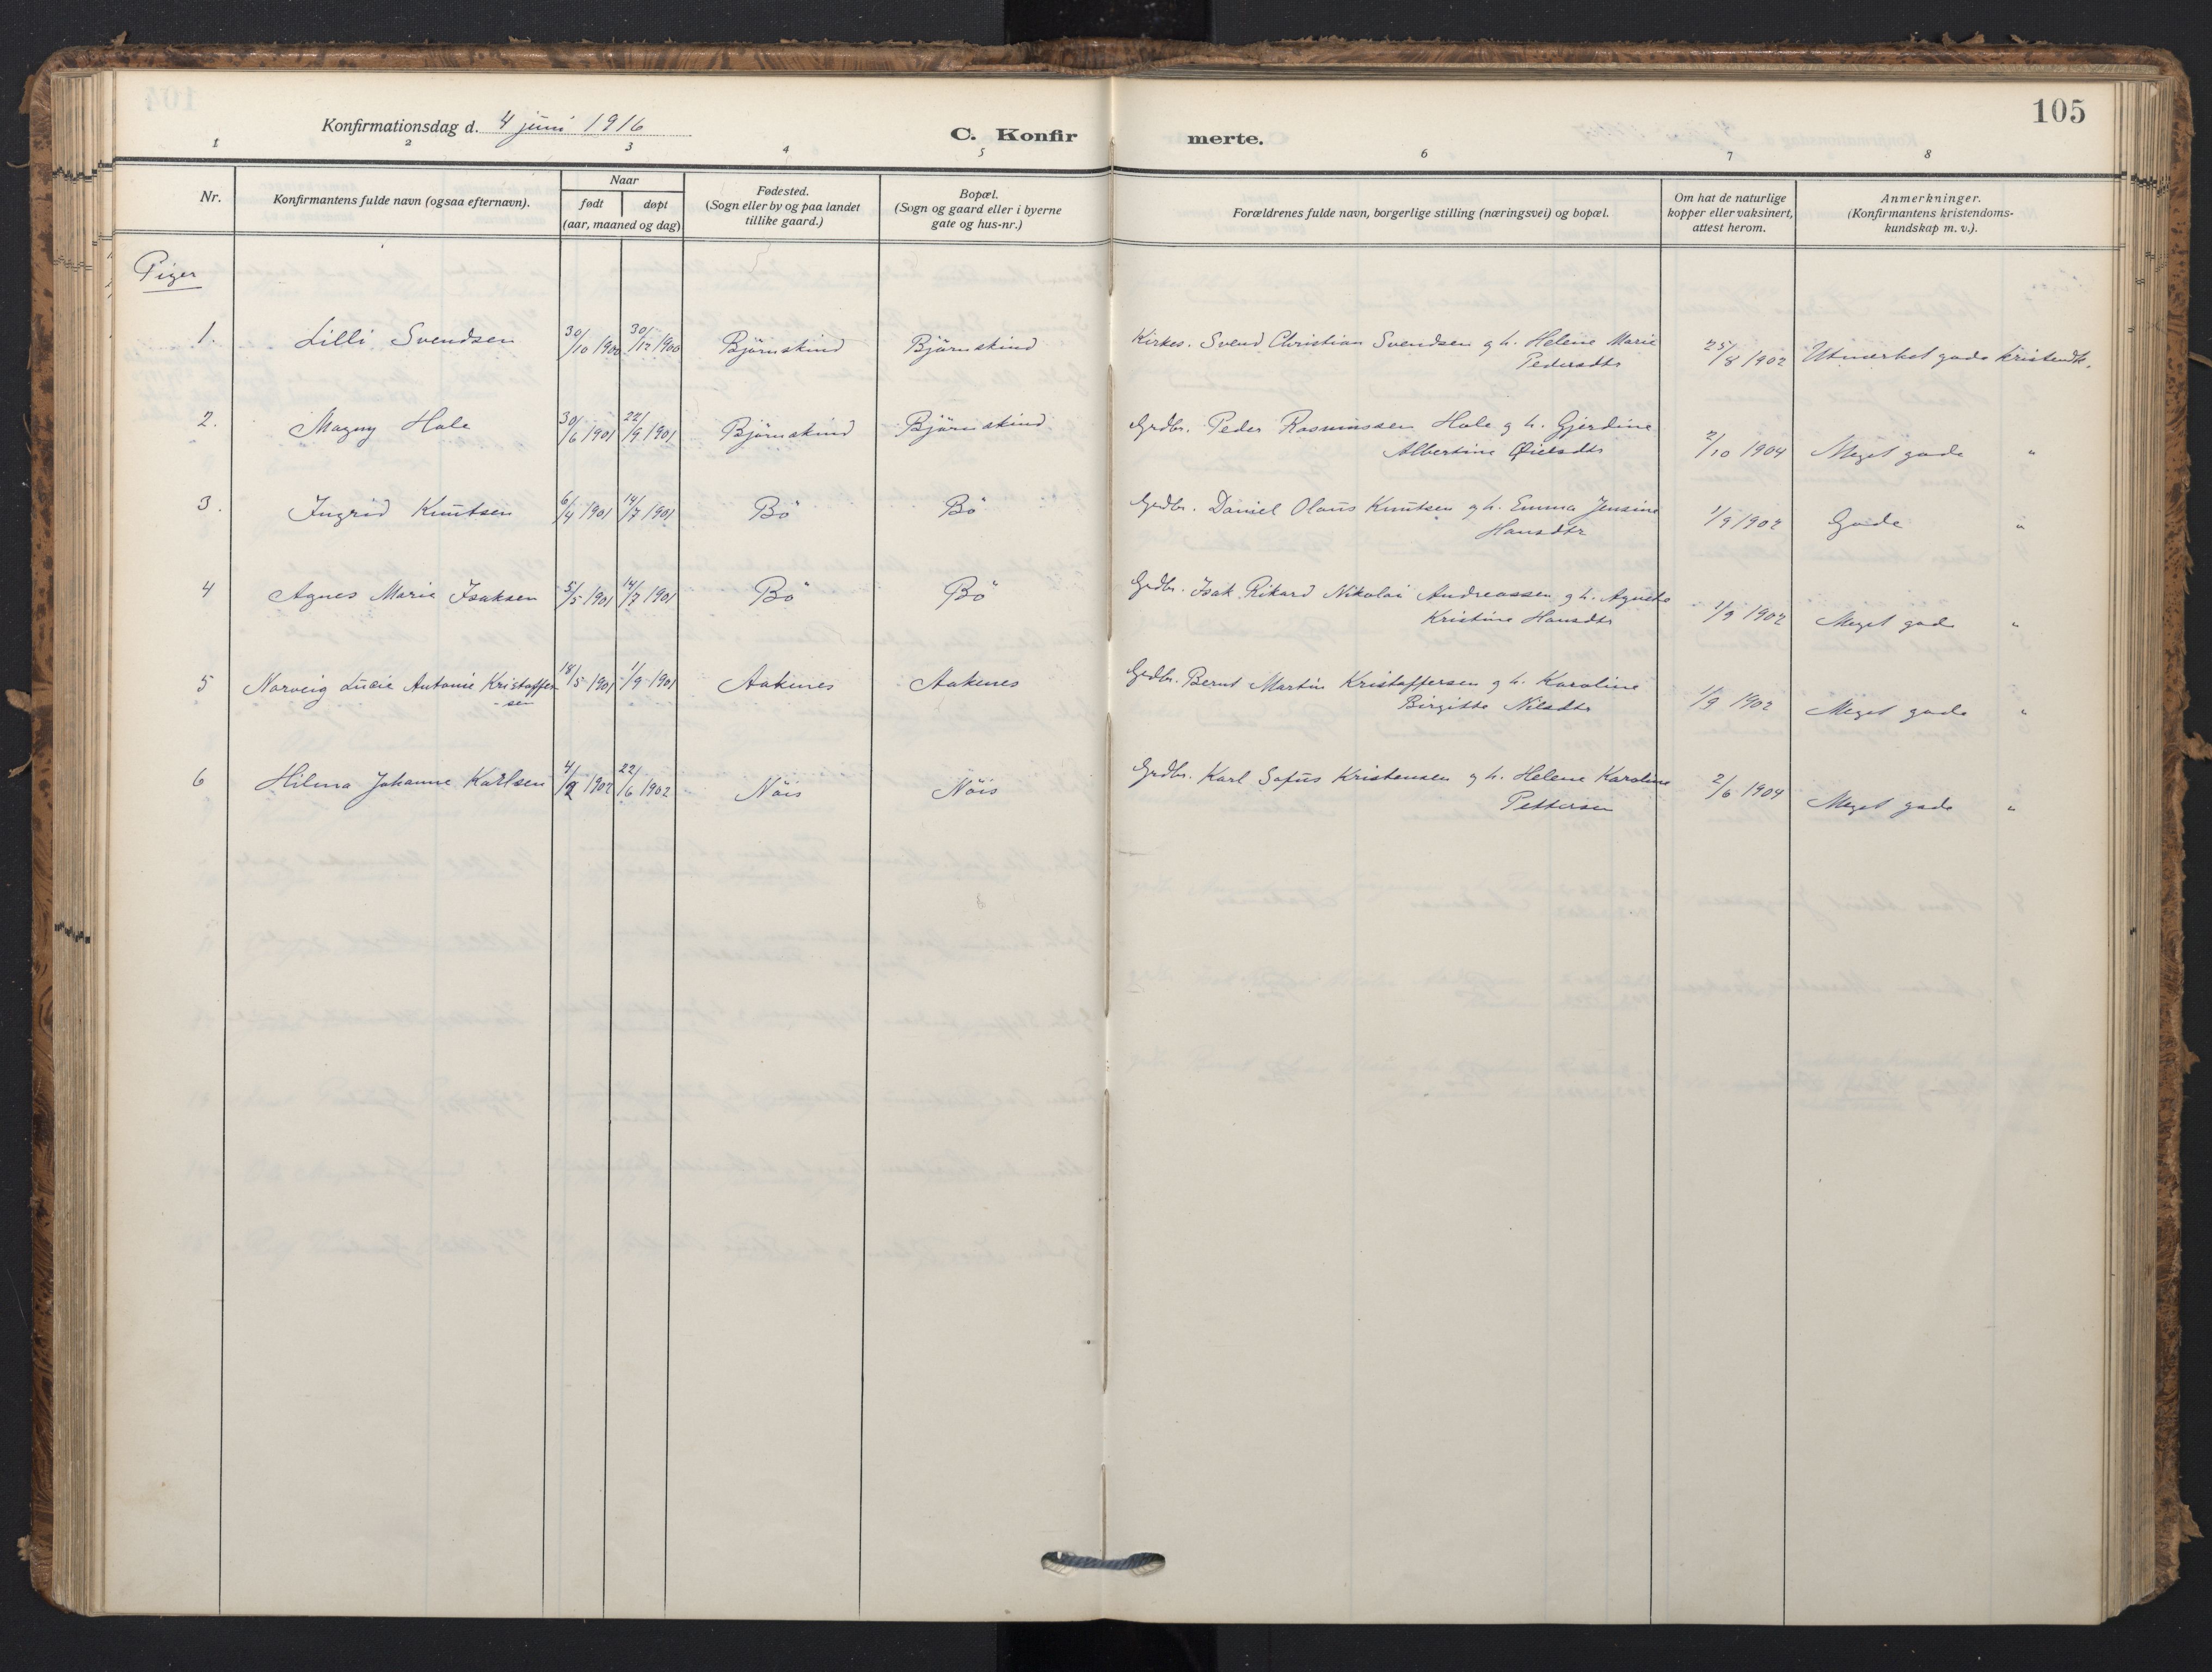 105
Konfirmationsdag d. 4 juni 1916
C. Konfirmerte.
1 2 3 4 5 6 7 8
Nr.
Konfirmantens fulde navn (ogsaa efternavn).
Naar
født døpt
(aar, maaned og dag)
Fødested.
(Sogn eller by og paa landet
tillike gaard.)
Bopæl.
(Sogn og gaard eller i byerne
gate og hus-nr.)
Forældrenes fulde navn, borgerlige stilling (næringsvei) og bopæl.
Om hat de naturlige
kopper eller vaksinert,
attest herom.
Anmerkninger.
(Konfirmantens kristendoms-
kundskap m. v.).
Piger
1. Lilli Svendsen 30/10 1900 30/12 1900 Björnskind Björnskind Kirkes. Svend Christian Svendsen g h. Helene Marie
Pedersdtr 25/8 1902 Utmerket gode kristendk.
2. Magny Hole 30/6 1901 22/9 1901 Björnskind Björnskind Grdbr. Peder Rasmussen Hole g h. Gjerdine
Albertine 2/10 1904 Meget gode "
3. Ingrid Knutsen 6/4 1901 14/7 1901 Bö Bö Grdbr. Daniel Olaus Knutsen g h. Emma Jensine
Hansdtr 1/9 1902 Gode "
4 Agnes Marie Isaksen 5/5 1901 14/7 1901 Bö Bö Grdbr. Isak Rikard Nikolai Andreassen g h. Agneta
Kristine Hansdtr 1/9 1902 Meget gode "
5 Narveig Lucie Antonie Kristoffer
-sen 18/5 1901 1/9 1901 Aakenes Aakenes Grdbr. Bernt Martin Kristoffersen g h. Karoline
Birgitte Nilsdtr 1/9 1902 Meget gode "
6 Hilma Johanne Karlsen 4/2 1902 22/6 1902 Nöis Nöis Grdbr. Karl Sofus Kristensen g h. Helene Karoline
Pettersen 2/6 1904 Meget gode "